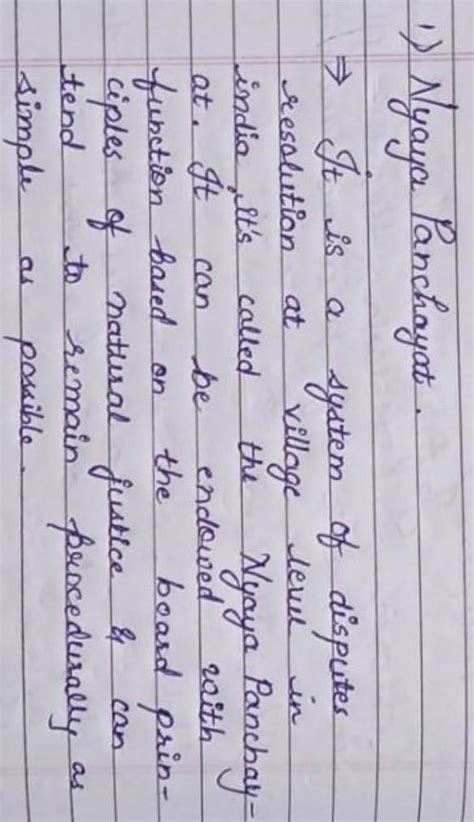 1) Nyaya Panchayat.
⇒ It is a system of disputes
resolution at village level in
india, it's called the Nyaya Panchay-
at. It can be endowed with
function based on the board prin-
ciples of natural justice & can
tend to remain procedurally as
simple as possible.